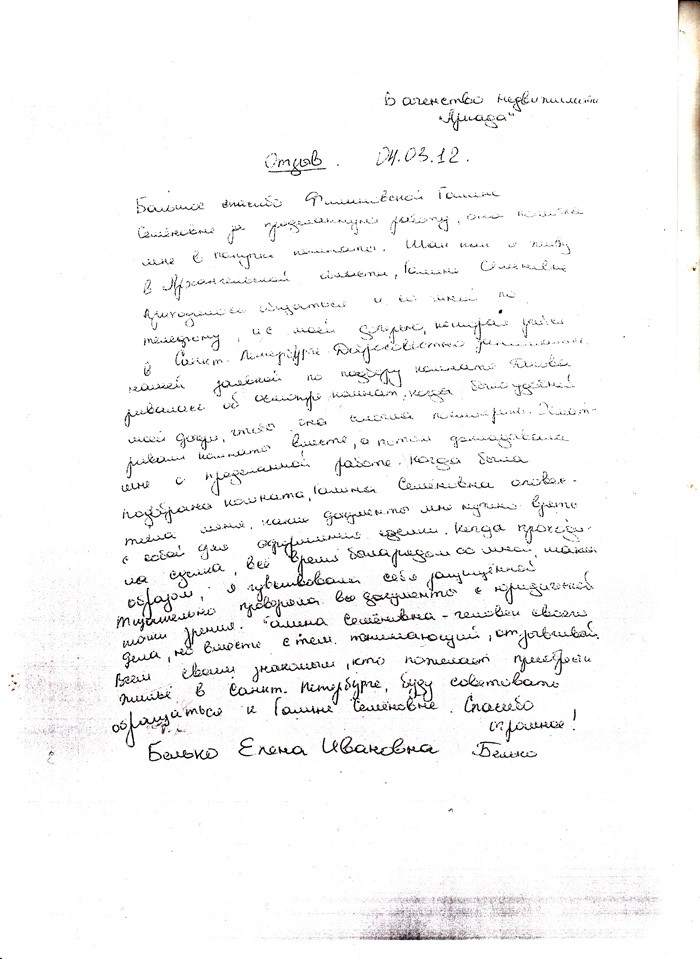 В агенство недвижимости
"Ариада"
Отзыв. 04.03.12.
Большое спасибо Филипповской Галине
Семёновне за проделанную работу, она помогла
мне в покупке комнаты. Так как я живу
в Архангельской области, Галине Семёновне
приходилось общаться и со мной по
телефону, и с моей дочерью, которая учится
в Санкт-Петербурге. Добросовестно занималась
нашей заявкой по подбору комнаты. Догова
ривалась об осмотре комнат, когда было удобно
моей дочери, чтобы она смогла посмотреть. Осмат-
ривали комнаты вместе, а потом докладывала
мне о проделанной работе. Когда была
подобрана комната, Галина Семёновна опове-
тила меня, какие документы мне нужно взять
с собой для оформления сделки. Когда проходи-
ла сделка, всё время была рядом со мной, таким
образом, я чувствовала себя защищённой
Тщательно проверяла все документы с юридической
точки зрения. Галина Семёновна - человек своего
дела, но вместе с тем понимающий, отзывчивый.
Всем своим знакомым, кто пожелает приобрести
жильё в Санкт-Петербурге, буду советовать
обращаться к Галине Семёновне. Спасибо
огромное!
Белько Елена Ивановна Белько